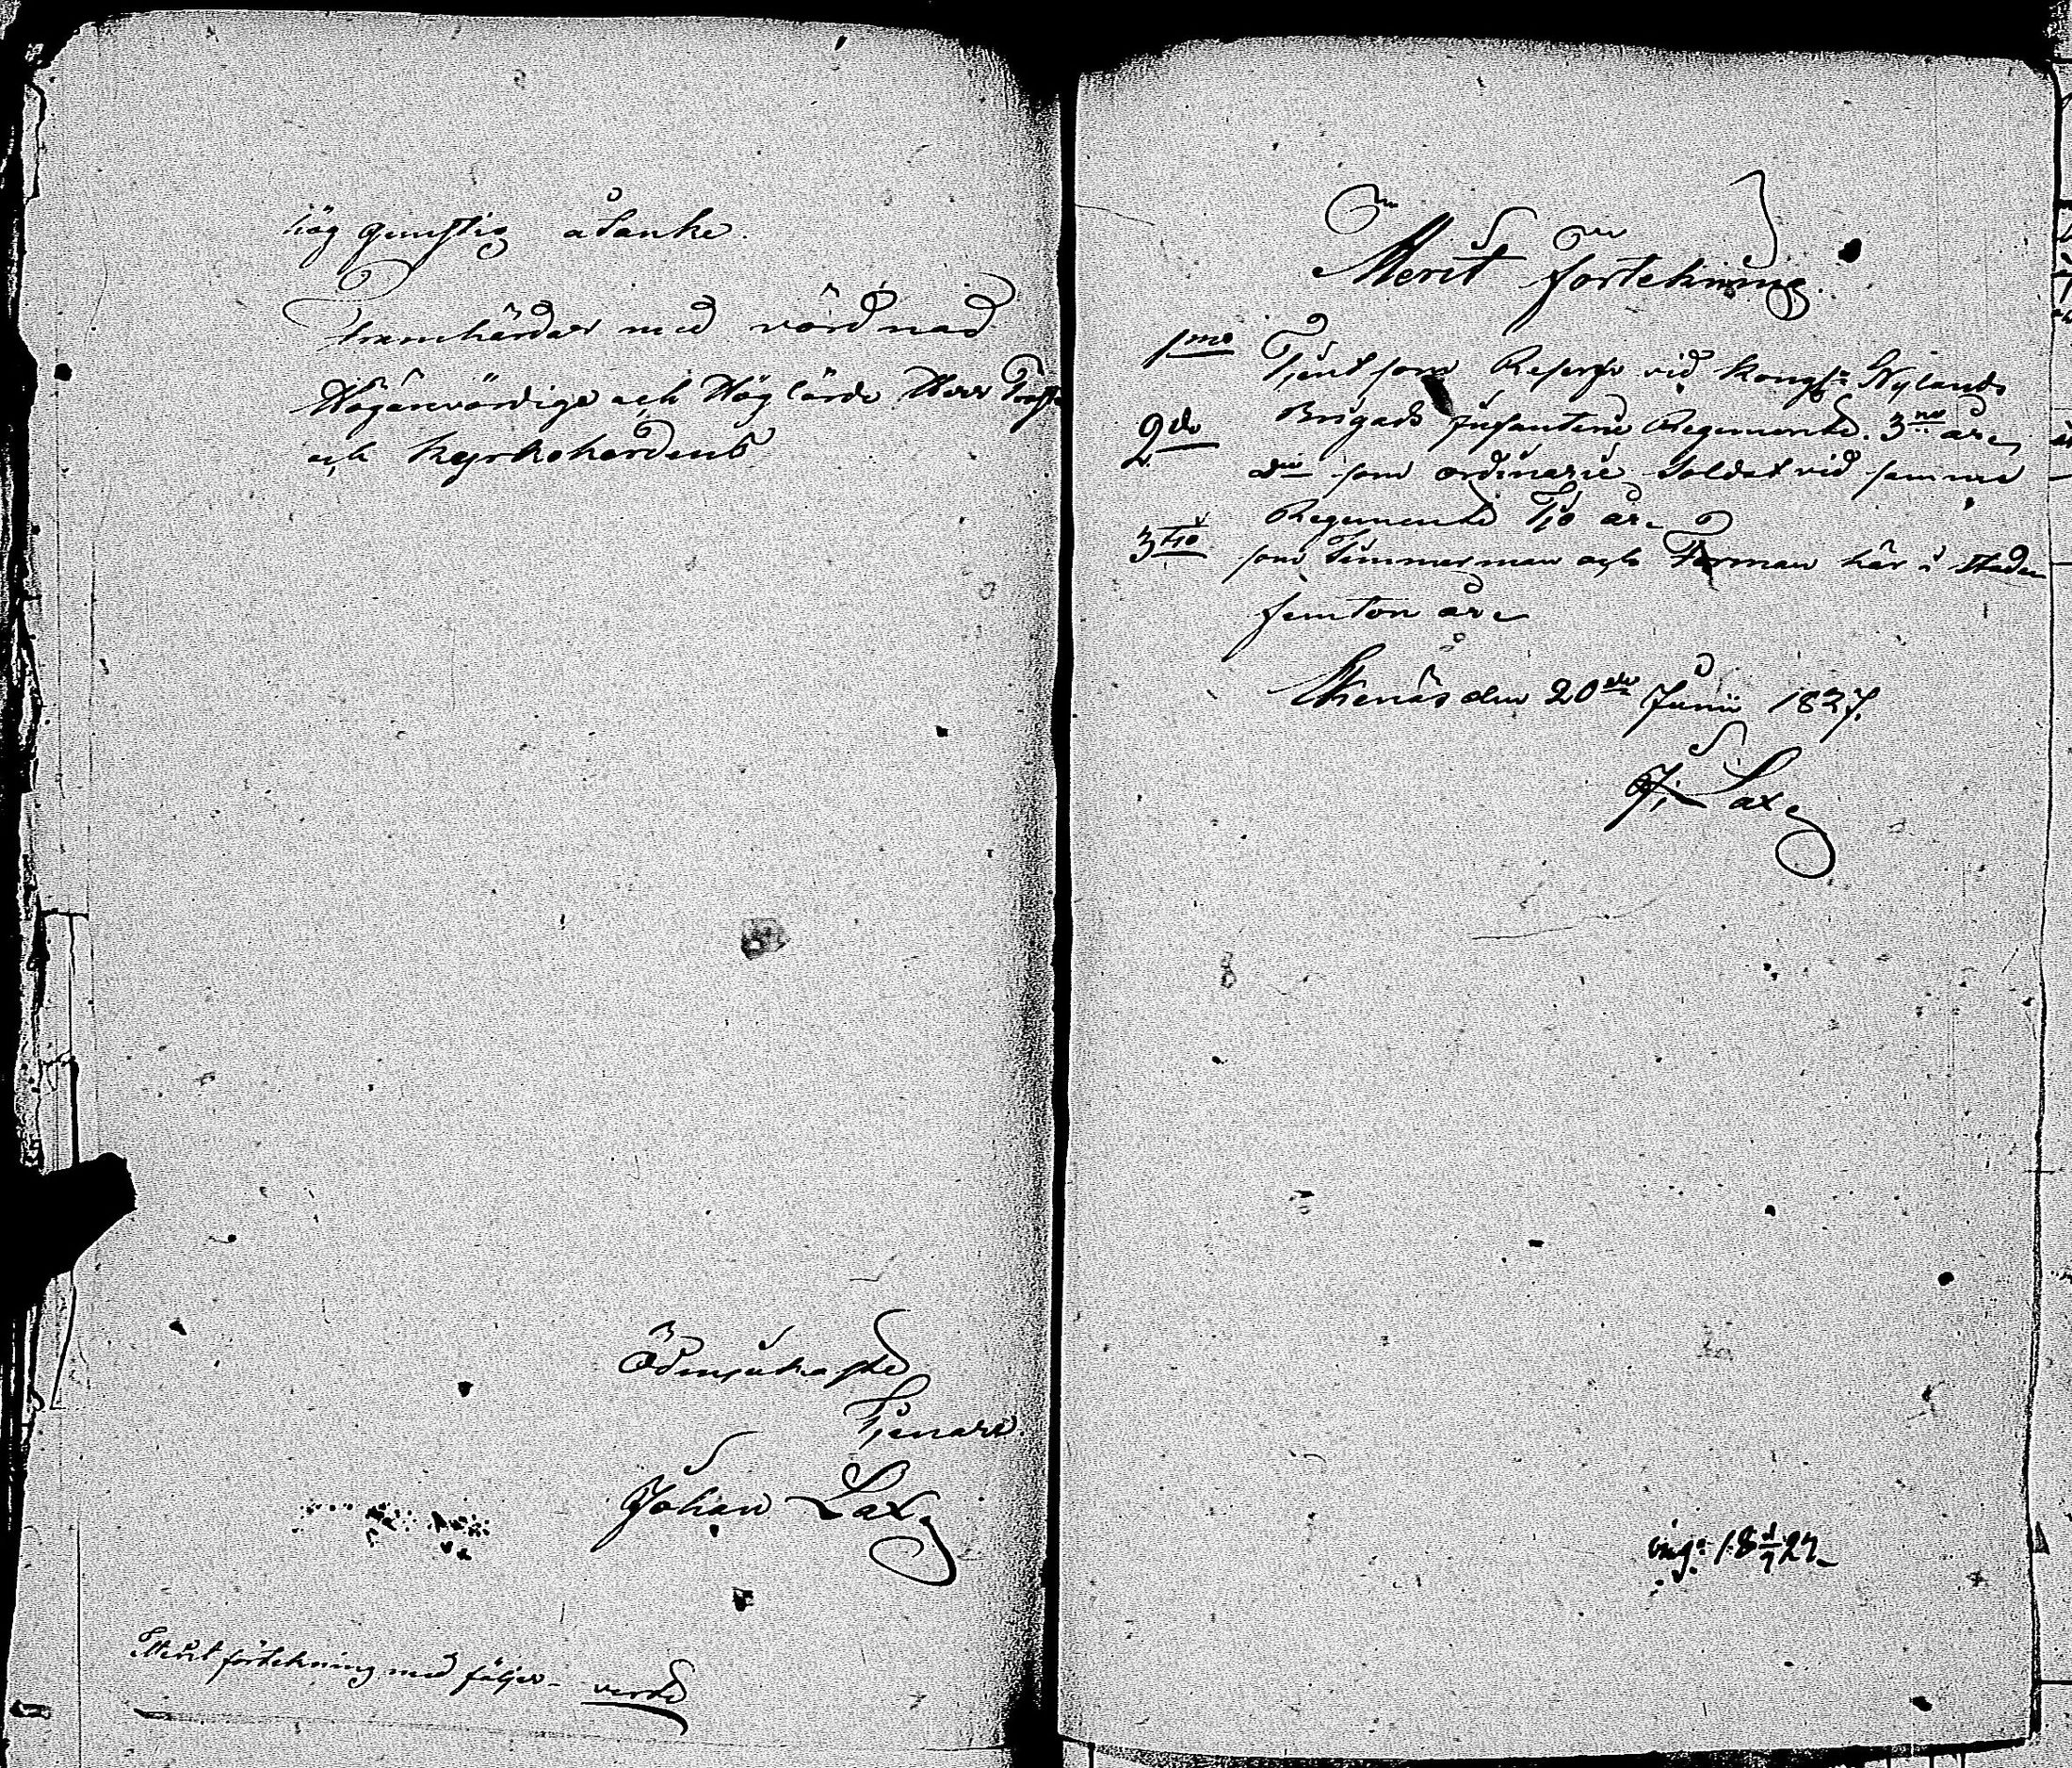 hög gunstig åtanke.
Framhärdar med vördnad
Högärevördige och Höglärde Herr
och Kyrkoherdens
Ödmjukaste
Tjenare.
Johan Lax
Merit förtekning med följer.
Merit förtekning.
1mo Tjent som Reserfe vid Kongl: Nylands
Brigads Infanterie Regemente. 3ne år
2do dito som ordinarie Soldat vid samma
Regemente Tio år
3tio som Timmerman och Forman här i Staden
femton år
Ekenäs den 20de Junii 1827.
J. Lax
ing: 18 1/7 27